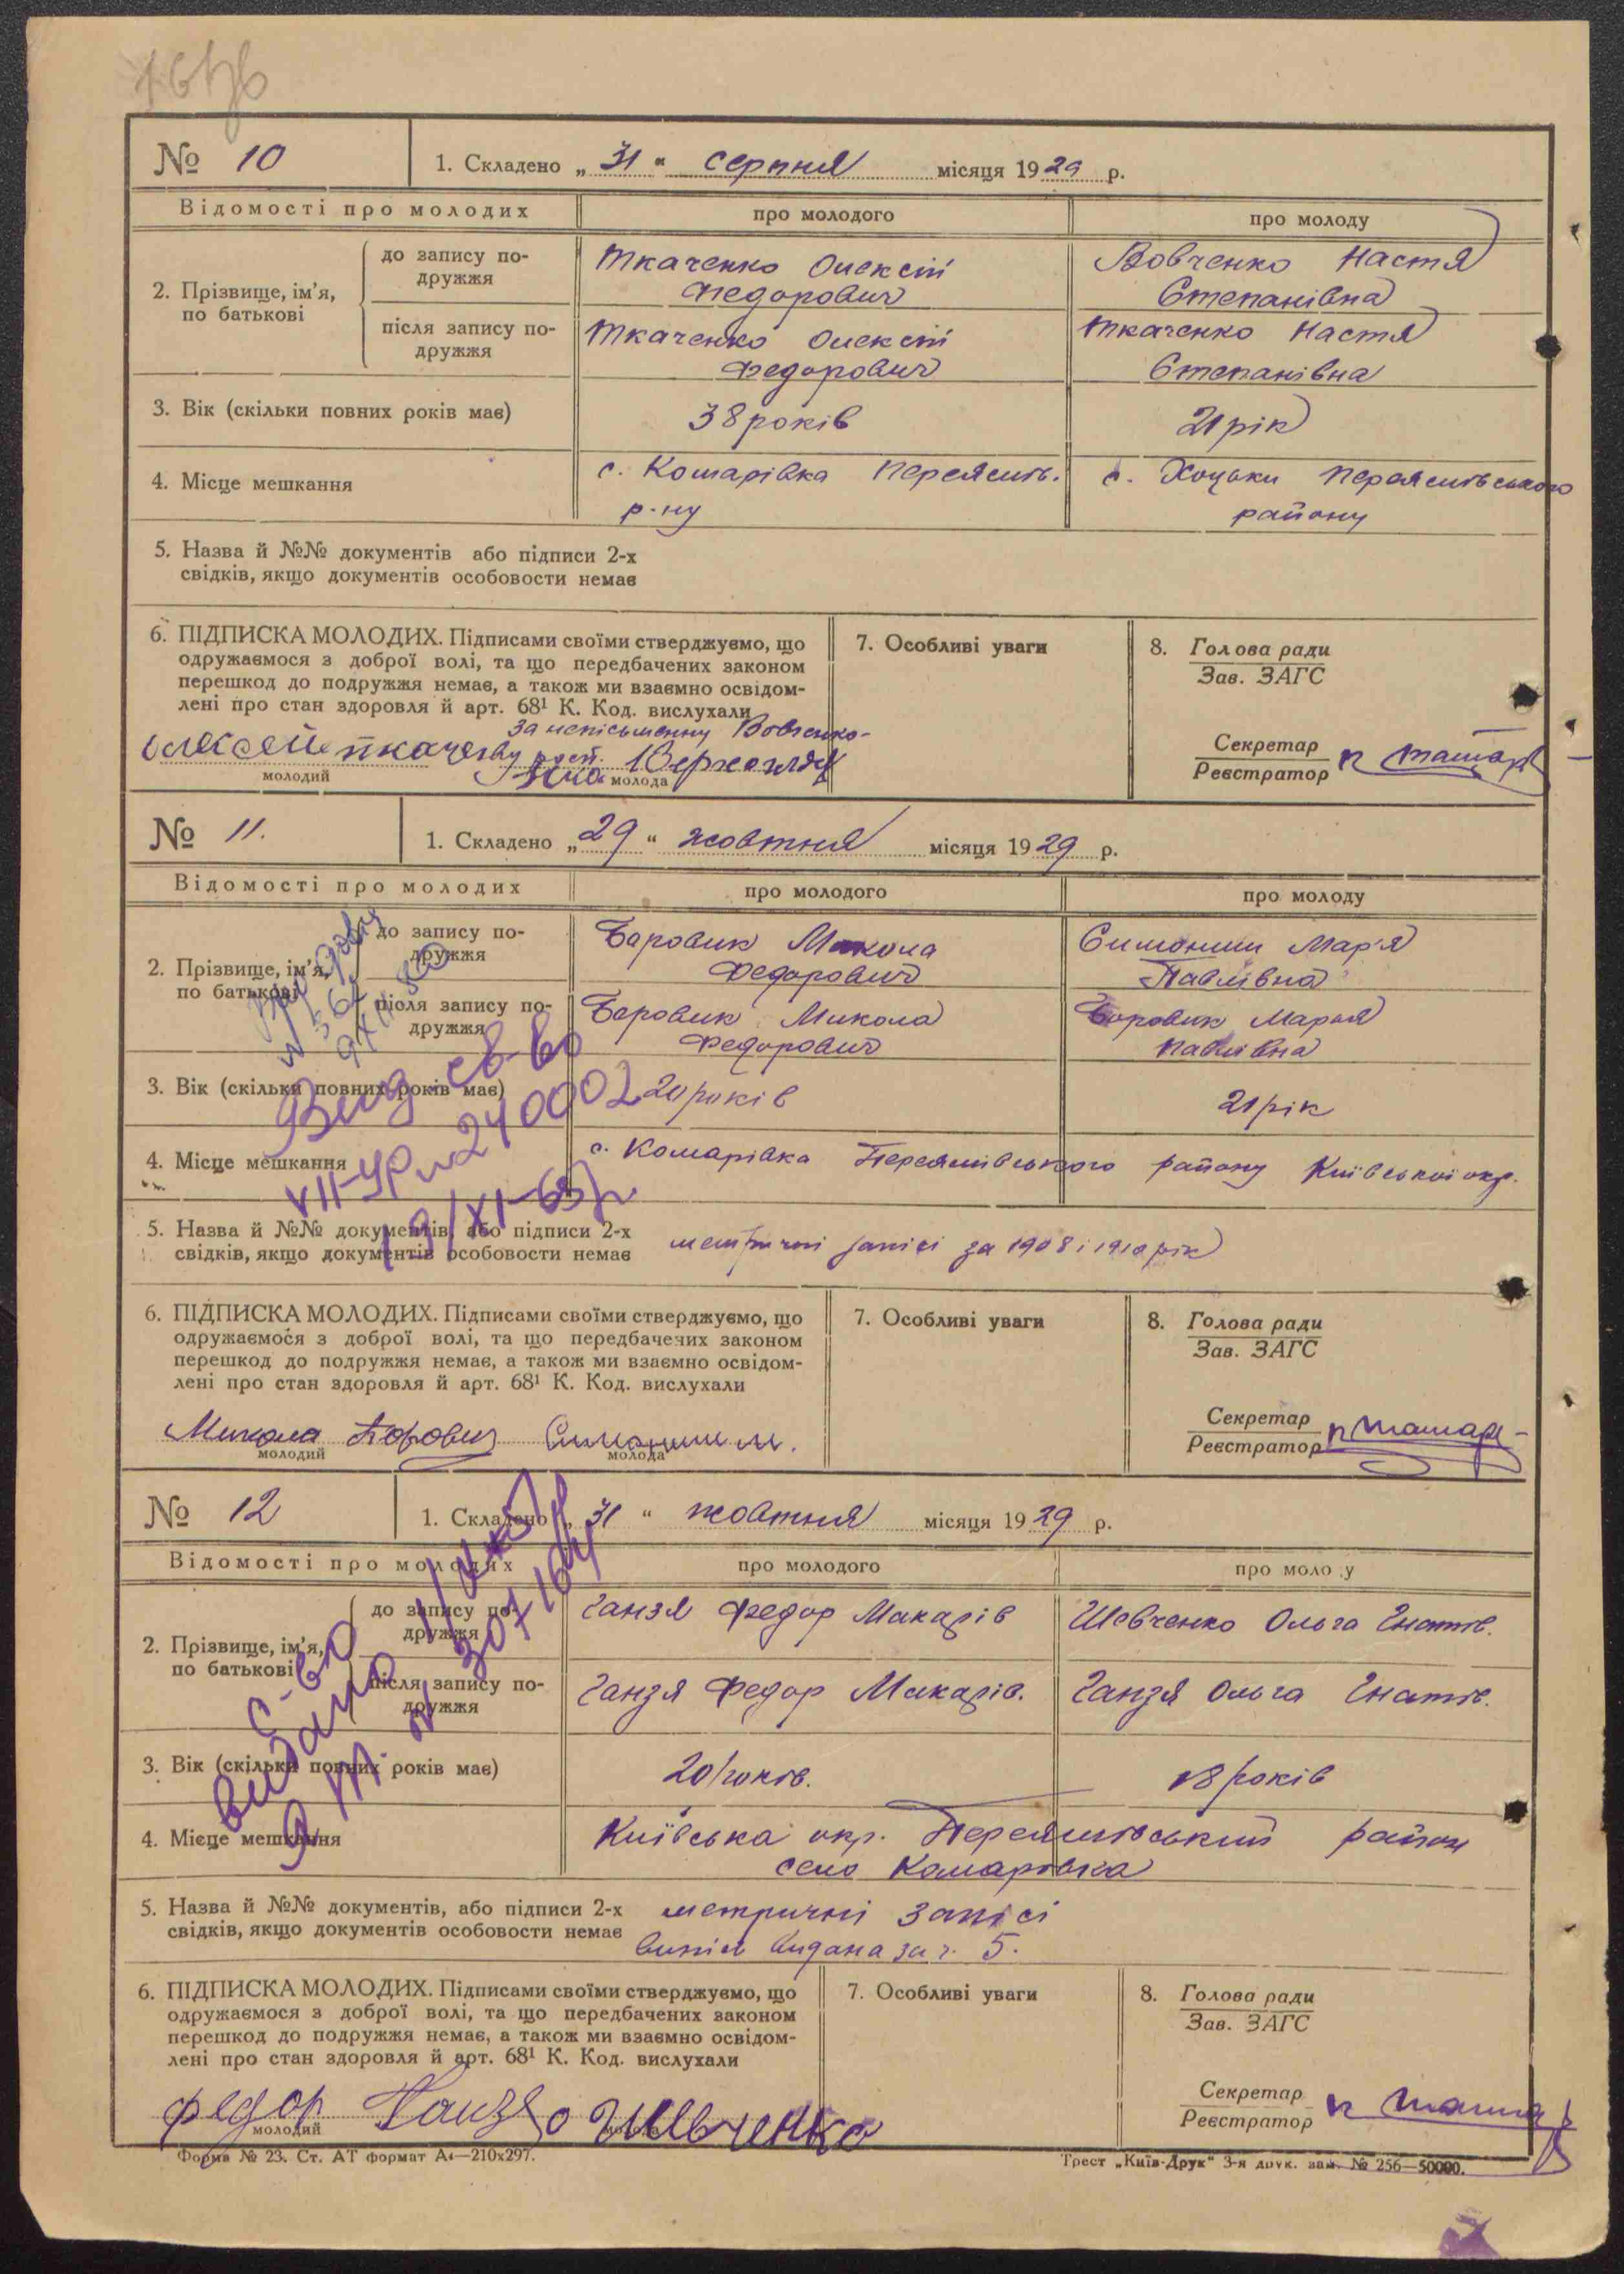 № 10
1. Складено „31“ серпня місяця 1929 р.
Відомості про молодих
про молодого
про молоду
2. Прізвище, ім’я, по батькові
до запису по-
дружжя
Ткаченко Олексій
Федорович
Вовченко Настя
Степанівна
після запису по-
дружжя
Ткаченко Олексій
Федорович
Ткаченко Настя
Степанівна
3. Вік (скільки повних років має)
38 років
21 рік
4. Місце мешкання
с. Комарівка Переяслів.
р-ну
с. Хоцьки Переяслівського
району
5. Назва й №№ документів або підписи 2-х
свідків, якщо документів особовости немає
6. ПІДПИСКА МОЛОДИХ. Підписами своїми стверджуємо, що
одружаємося з доброї волі, та що передбачених законом
перешкод до подружжя немає, а також ми взаємно освідом-
лені про стан здоровля й арт. 68¹ К. Код. вислухали
за неписьменну Вовченко-
молодий
молода
7. Особливі уваги
8. Голова ради
Зав. ЗАГС
Секретар
Реєстратор
№ 11.
1. Складено „29“ жовтня місяця 1929 р.
Відомості про молодих
про молодого
про молоду
2. Прізвище, ім’я,
по батькові
до запису по-
дружжя
Боровик Микола
Федорович
Симониш Мар'я
Павлівна
після запису по-
дружжя
Боровик Микола
Федорович
Боровик Марья
Павлівна
3. Вік (скільки повних років має)
20 років
21 рік
4. Місце мешкання
с. Комарівка Переяслівського району Київської окр.
Вид. св-во
VII-УР № 240002
19/XI-65 р
5. Назва й №№ документів, або підписи 2-х
свідків, якщо документів особовости немає
метричні запісі за 1908 і 1910 рік
6. ПІДПИСКА МОЛОДИХ. Підписами своїми стверджуємо, що
одружаємося з доброї волі, та що передбачених законом
перешкод до подружжя немає, а також ми взаємно освідом-
лені про стан здоровля й арт. 68¹ К. Код. вислухали
Микола Боровик Симониш М.
молодий
молода
7. Особливі уваги
8. Голова ради
Зав. ЗАГС
Секретар
Реєстратор
№ 12
1. Складено „31“ жовтня місяця 1929 р.
Відомості про молодих
про молодого
про моло у
2. Прізвище, ім’я,
по батькові
до запису по-
дружжя
Ганзя Федор Макарів
Шевченко Ольга Гнатів.
після запису по-
дружжя
Ганзя Федор Макарів.
Ганзя Ольга Гнатів.
3. Вік (скільки повних років має)
20 років.
18 років
4. Місце мешкання
Київська окр. Переяслівський район
село Комарівка
С-во
видано
5. Назва й №№ документів, або підписи 2-х
свідків, якщо документів особовости немає
метричні запісі
випис видана за ч. 5.
6. ПІДПИСКА МОЛОДИХ. Підписами своїми стверджуємо, що
одружаємося з доброї волі, та що передбачених законом
перешкод до подружжя немає, а також ми взаємно освідом-
лені про стан здоровля й арт. 68¹ К. Код. вислухали
Федор Ганзя О Шевченко
молодий
7. Особливі уваги
8. Голова ради
Зав. ЗАГС
Секретар
Реєстратор
Форма № 23. Ст. АТ формат А4—210х297.
Трест „Київ-Друк“ 3-я друк. зам. № 256—50000.